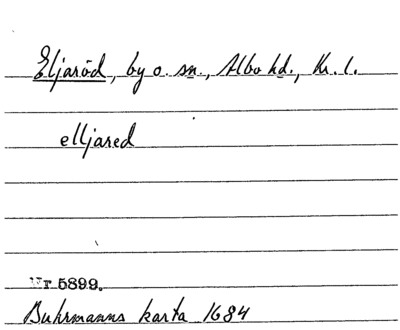 Eljaröd, by o. sn., Albo hd., Kr. l.
elljared
Nr 5899.
Buhrmanns karta 1684